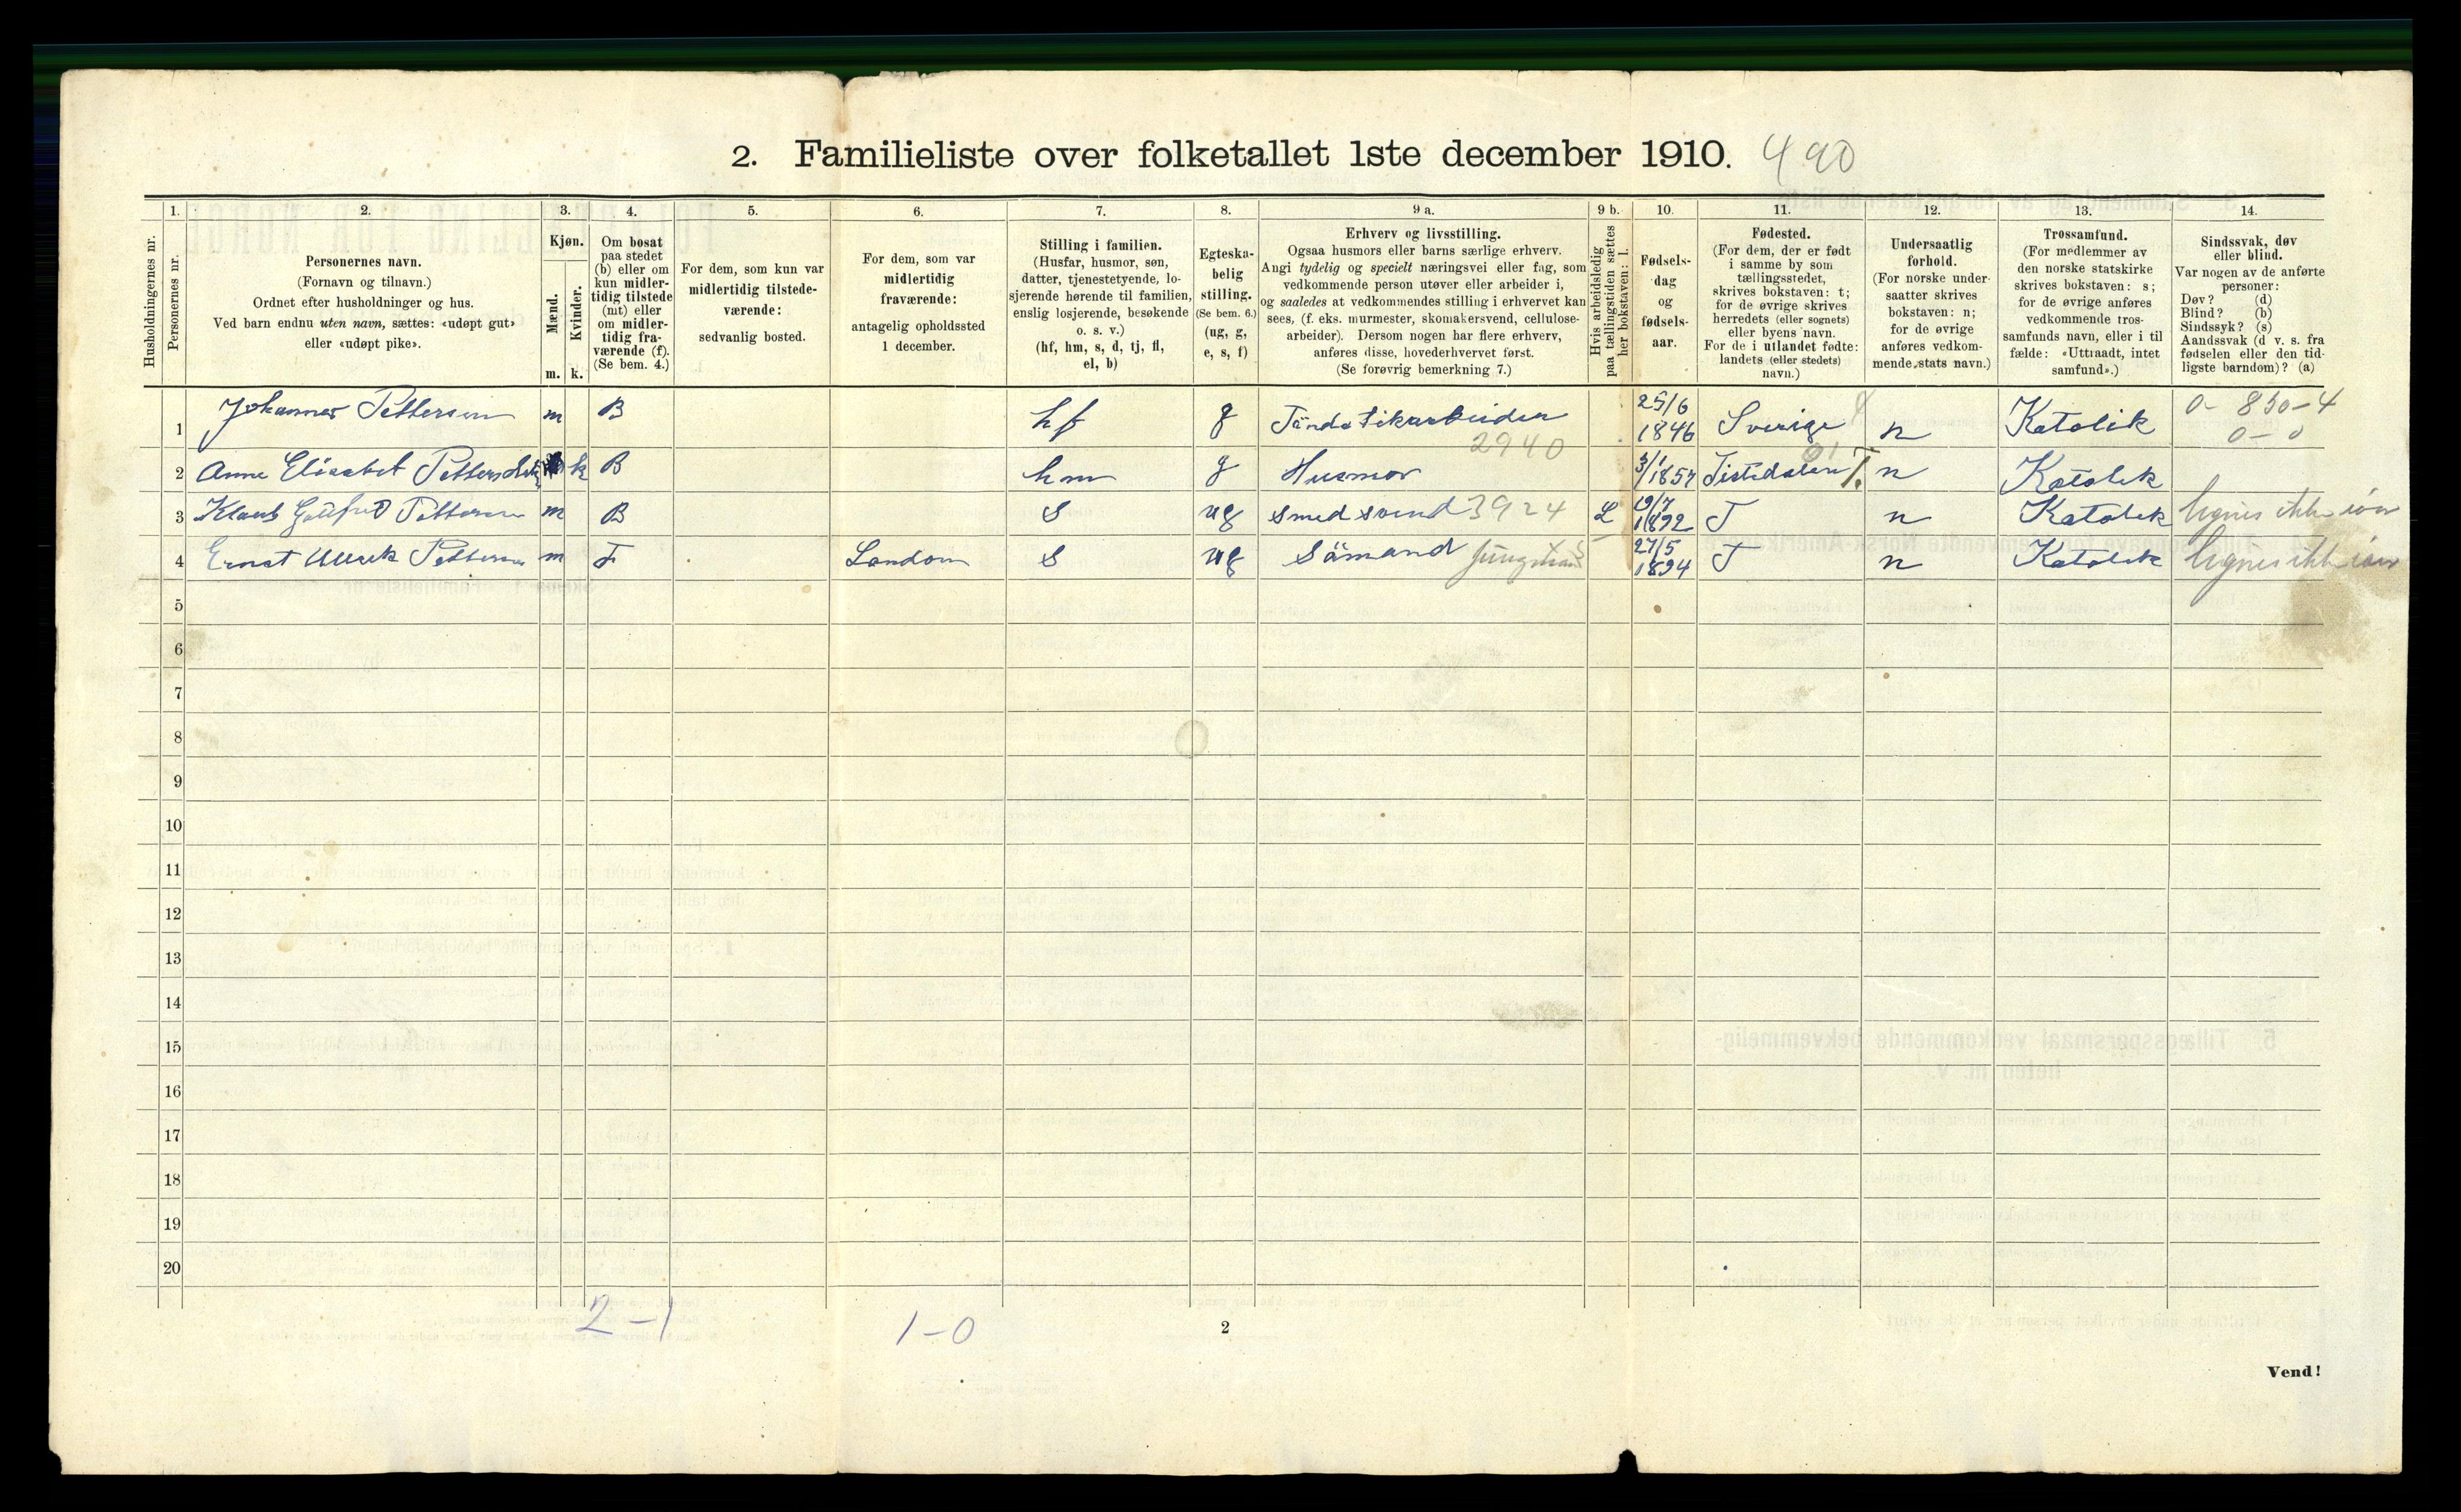 2. Familieliste over folketallet 1ste december 1910. 490
1. 2. 3. 4. 5. 6. 7. 8. 9 a. 9 b. 10. 11. 12. 13. 14.
Husholdningernes nr.
Personernes nr.
Personernes navn.
(Fornavn og tilnavn.)
Ordnet efter husholdninger og hus.
Ved barn endnu uten navn, sættes: «udøpt gut»
eller «udøpt pike».
Kjøn.
Mænd.
Kvinder.
m. k.
Om bosat
paa stedet
(b) eller om
kun midler-
tidig tilstede
(mt) eller
om midler-
tidig fra-
værende (f).
(Se bem. 4.)
For dem, som kun var
midlertidig tilstede-
værende:
sedvanlig bosted.
For dem, som var
midlertidig
fraværende:
antagelig opholdssted
1 december.
Stilling i familien.
(Husfar, husmor, søn,
datter, tjenestetyende, lo-
sjerende hørende til familien,
enslig losjerende, besøkende
o. s. v.)
(hf, hm, s, d, tj, fl,
el, b)
Egteska-
belig
stilling.
(Se bem. 6.)
(ug, g,
e, s, f)
Erhverv og livsstilling.
Ogsaa husmors eller barns særlige erhverv.
Angi tydelig og specielt næringsvei eller fag, som
vedkommende person utøver eller arbeider i,
og saaledes at vedkommendes stilling i erhvervet kan
sees, (f. eks. murmester, skomakersvend, cellulose-
arbeider). Dersom nogen har flere erhverv,
anføres disse, hovederhvervet først.
(Se forøvrig bemerkning 7.)
Hvis arbeidsledig
paa tællingstiden sættes
her bokstaven: l.
Fødsels-
dag
og
fødsels-
aar.
Fødested.
(For dem, der er født
i samme by som
tællingsstedet,
skrives bokstaven: t;
for de øvrige skrives
herredets (eller sognets)
eller byens navn.
For de i utlandet fødte:
landets (eller stedets)
navn.)
Undersaatlig
forhold.
(For norske under-
saatter skrives
bokstaven: n;
for de øvrige
anføres vedkom-
mende stats navn.)
Trossamfund.
(For medlemmer av
den norske statskirke
skrives bokstaven: s;
for de øvrige anføres
vedkommende tros-
samfunds navn, eller i til
fælde: «Uttraadt, intet
samfund».)
Sindssvak, døv
eller blind.
Var nogen av de anførte
personer:
Døv? (d)
Blind? (b)
Sindssyk? (s)
Aandssvak (d v. s. fra
fødselen eller den tid-
ligste barndom)? (a)
1 Johannes Pettersen m B hf g 25/6 1846 Sverige n Katolik 0- 850-4
2940 0-0
2 Anne Elisabet k B hm g Husmor 3/1 1857 Tistedalen T. n Katolik
3 Pettersen m B s ug smedsvend 3924 L 19/7 1892 T n Katolik lignes ikke
4 Ernst Pettersen m F London s ug Sömand 27/5 1894 T n Katolik lignes ikke
5
6
7
8
9
10
11
12
13
14
15
16
17
18
19
20
2-1 1-0
2
Vend!